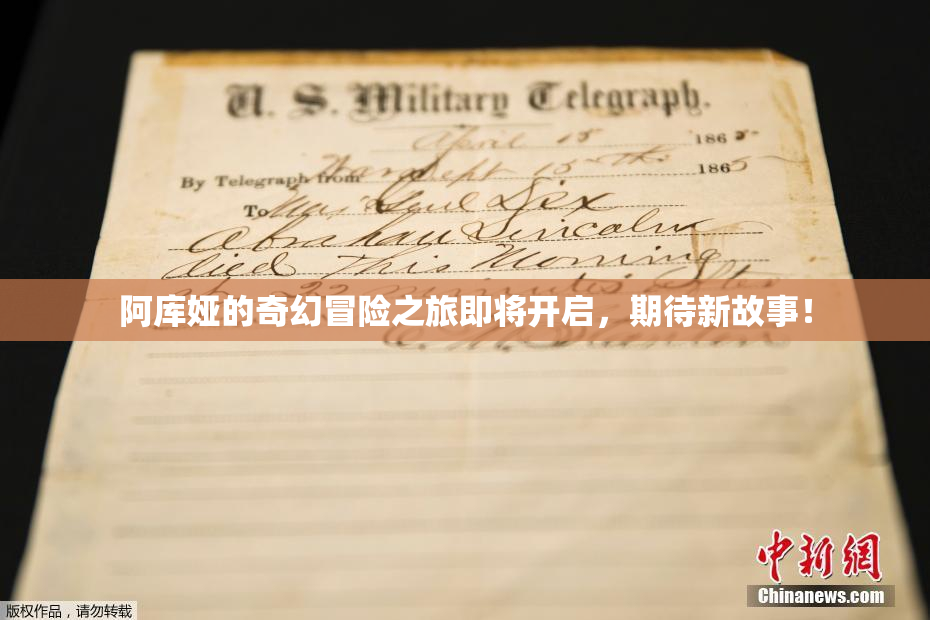 U. S. Military Telegraph.
April 15 1865
By Telegraph from War Dept 15th 1865
To Maj Genl Dix
Abraham Lincoln
died This Morning
at 22 minutes after
阿库娅的奇幻冒险之旅即将开启，期待新故事！
E. M. Stanton
中新网
Chinanews.com
版权作品，请勿转载